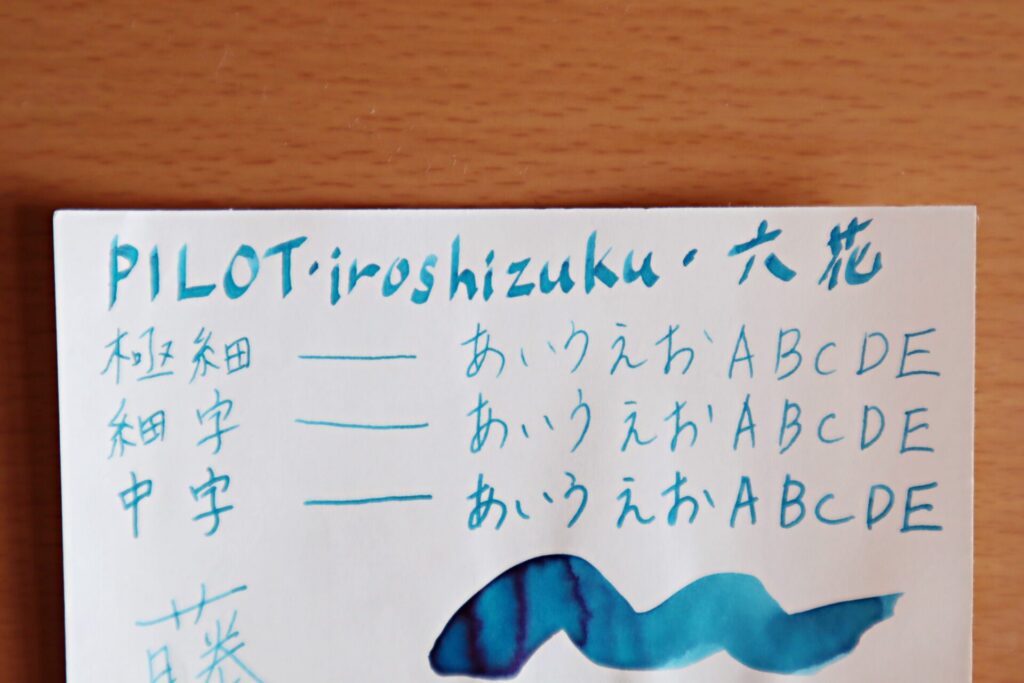 PILOT・iroshizuku・六花
極細 — あいうえおABCDE
細字 — あいうえおABCDE
中字 — あいうえおABCDE
藤